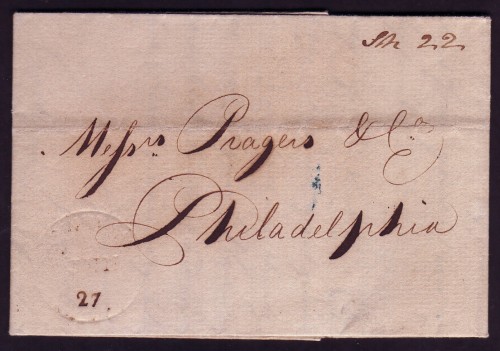 Sh 22
Messrs Pragers & Co
Philadelphia
27